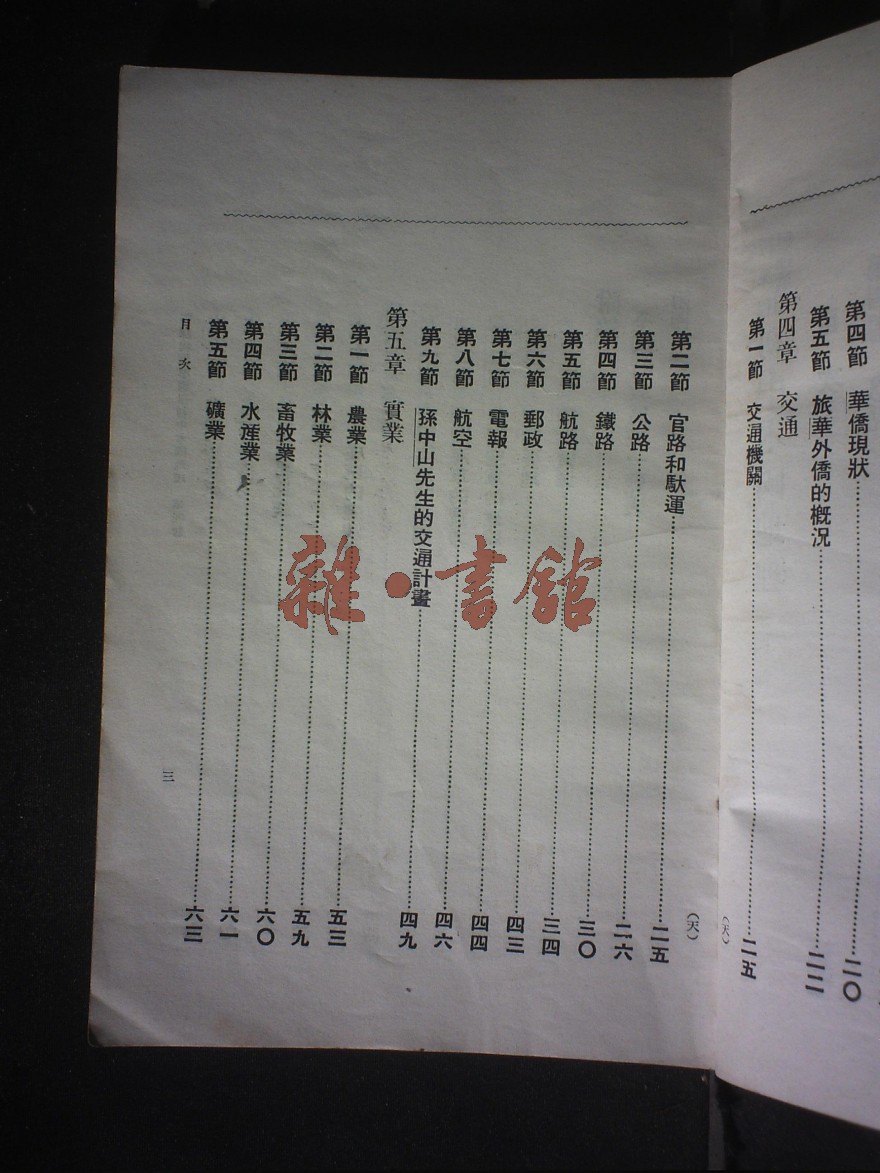 第四節 華僑現狀………二〇
第五節 旅華外僑的概況………二二
第四章 交通
第一節 交通機關………二五
(天)
(天)
第二節 官路和馱運………二五
第三節 公路………二六
第四節 鐵路………三〇
第五節 航路………三四
第六節 郵政………四三
第七節 電報………四四
第八節 航空………四六
第九節 孫中山先生的交通計畫………四九
第五章 實業
第一節 農業………五三
第二節 林業………五九
第三節 畜牧業………六〇
第四節 水產業………六一
第五節 礦業………六三
目次
三
雜·書館